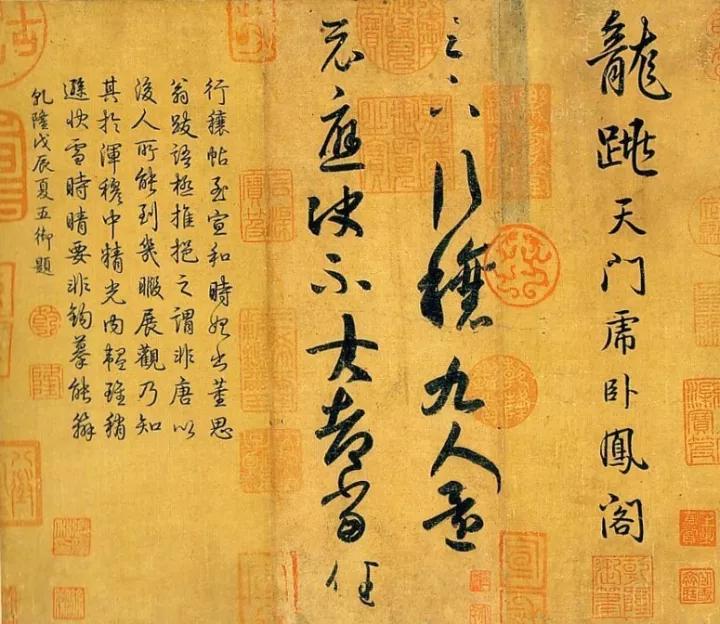 龍跳天門虎卧鳳閣
足下行穰九人還
示應決不大都當任
行穰帖至宣和時始出董思
翁跋語極推挹之謂非唐以
後人所能到幾暇展觀乃知
其於渾穆中精光內韞雖稍
遜快雪時晴要非鉤摹能辦
乾隆戊辰夏五御題